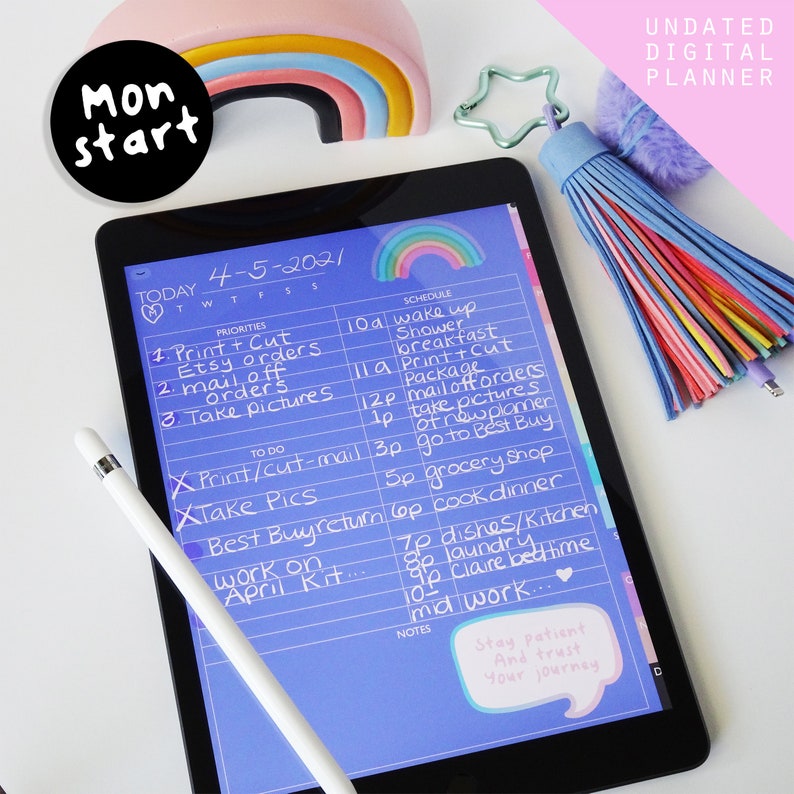 UNDATED
DIGITAL
PLANNER
Mon
start
TODAY 4-5-2021
M T W T F S S
PRIORITIES
1. Print + Cut
Etsy orders
2. mail off
orders
3. Take pictures
TO DO
X Print/cut-mail
X Take Pics
Best Buy return
work on
April Kit...
SCHEDULE
10a wake up
Shower
breakfast
11a Print + cut
Package
12p mail off orders
1p take pictures
of new planner
3p go to Best Buy
5p grocery shop
6p cook dinner
7p dishes/Kitchen
8p laundry
9p Claire bedtime
10-
mid work...
NOTES
Stay patient
And trust
Your journey
D